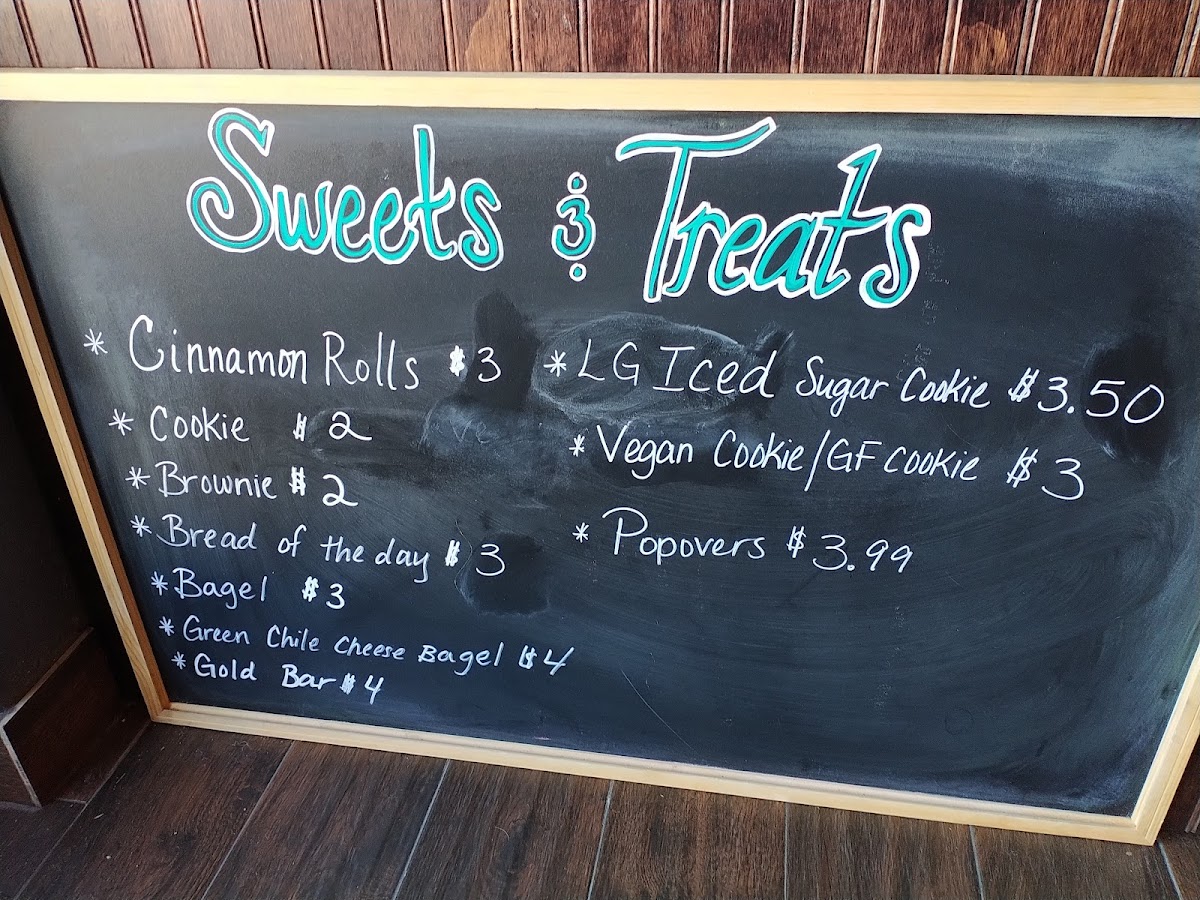 Sweets & Treats
* Cinnamon Rolls $3
* Cookie $2
* Brownie $2
* Bread of the day $3
* Bagel $3
* Green Chile Cheese Bagel $4
* Gold Bar $4
* LG Iced Sugar Cookie $3.50
* Vegan Cookie/GF cookie $3
* Popovers $3.99